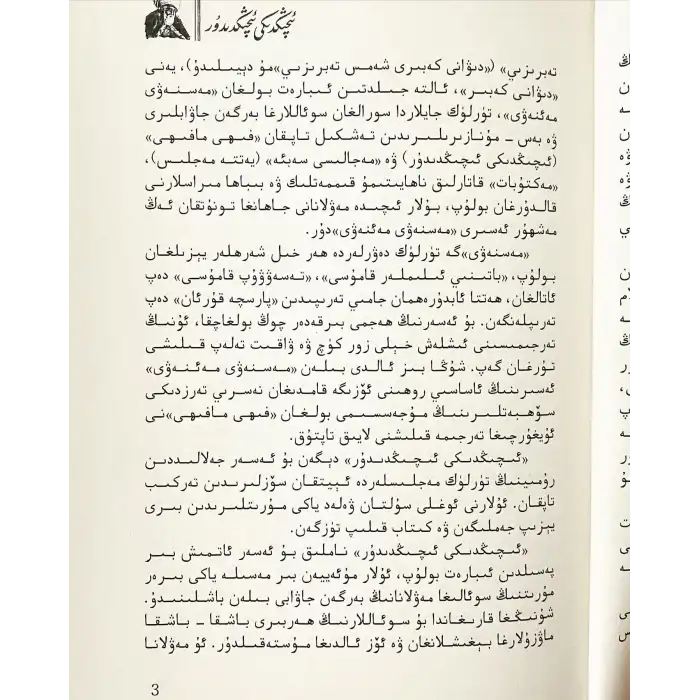 ئىچىڭدىكى ئىچىڭدىدۇر
تەبرىزىي» («دىۋانى كەبىرى شەمس تەبرىزىي»مۇ دېيىلىدۇ)، يەنى
«دىۋانى كەبىر»، ئالتە جىلدتىن ئىبارەت بولغان «مەسنەۋى
مەئنەۋى»، تۈرلۈك جايلاردا سورالغان سوئاللارغا بەرگەن جاۋابلىرى
ۋە بەس – مۇنازىرىلىرىدىن تەشكىل تاپقان «فىھى مافىھى»
(ئىچىڭدىكى ئىچىڭدىدۇر) ۋە «مەجالىسى سەبئە» (يەتتە مەجلىس)،
«مەكتۇبات» قاتارلىق ناھايىتىمۇ قىممەتلىك ۋە بىباھا مىراسلارنى
قالدۇرغان بولۇپ، بۇلار ئىچىدە مەۋلانانى جاھانغا تونۇتقان ئەڭ
مەشھۇر ئەسىرى «مەسنەۋى مەئنەۋى»دۇر.
«مەسنەۋى»گە تۈرلۈك دەۋرلەردە ھەر خىل شەرھلەر يېزىلغان
بولۇپ، «باتىنىي ئىلىملەر قامۇسى»، «تەسەۋۋۇپ قامۇسى» دەپ
ئاتالغان، ھەتتا ئابدۇرەھمان جامىي تەرىپىدىن «پارسچە قۇرئان» دەپ
تەرىپلەنگەن. بۇ ئەسەرنىڭ ھەجمى بىرقەدەر چوڭ بولغاچقا، ئۇنىڭ
تەرجىمىسىنى ئىشلەش خېلى زور كۈچ ۋە ۋاقىت تەلەپ قىلىشى
تۇرغان گەپ. شۇڭا بىز ئالدى بىلەن «مەسنەۋى مەئنەۋى»
ئەسىرىنىڭ ئاساسىي روھىنى ئۆزىگە قامدىغان نەسرىي تەرزدىكى
سۆھبەتلىرىنىڭ مۇجەسسىمى بولغان «فىھى مافىھى»نى
ئۇيغۇرچىغا تەرجىمە قىلىشنى لايىق تاپتۇق.
«ئىچىڭدىكى ئىچىڭدىدۇر» دېگەن بۇ ئەسەر جەلالىددىن
رۇمىينىڭ تۈرلۈك مەجلىسلەردە ئېيتقان سۆزلىرىدىن تەركىب
تاپقان. ئۇلارنى ئوغلى سۇلتان ۋەلەد ياكى مۇرىتلىرىدىن بىرى
يېزىپ جەملىگەن ۋە كىتاب قىلىپ تۈزگەن.
«ئىچىڭدىكى ئىچىڭدىدۇر» ناملىق بۇ ئەسەر ئاتمىش بىر
پەسىلدىن ئىبارەت بولۇپ، ئۇلار مۇئەييەن بىر مەسىلە ياكى بىرەر
مۇرىتنىڭ سوئالىغا مەۋلانانىڭ بەرگەن جاۋابى بىلەن باشلىنىدۇ.
شۇنىڭغا قارىغاندا بۇ سوئاللارنىڭ ھەربىرى باشقا – باشقا
ماۋزۇلارغا بېغىشلانغان ۋە ئۆز ئالدىغا مۇستەقىلدۇر. ئۇ مەۋلانا
3